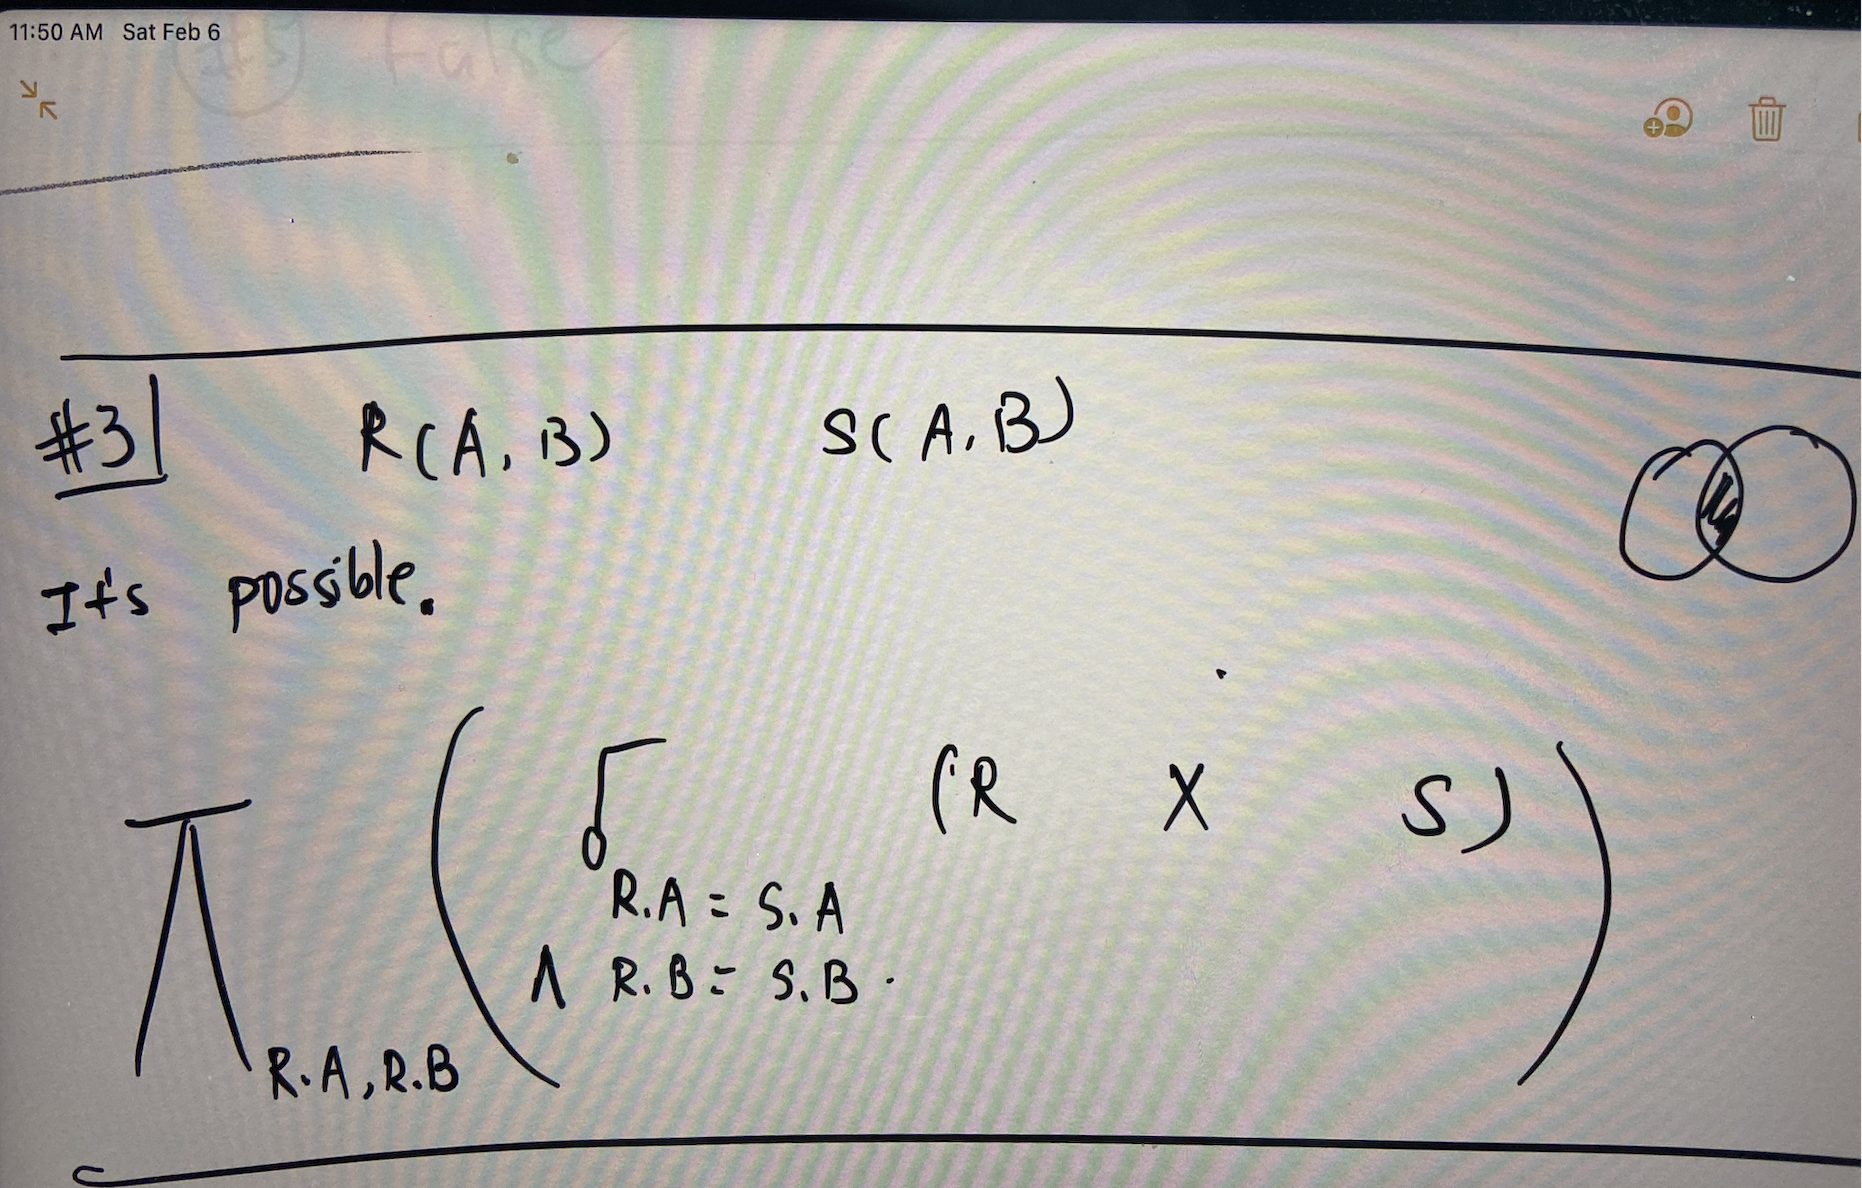 11:50 AM Sat Feb 6
It's False
#3 R(A, B) S(A, B)
It's possible.
π ( σ (R X S) )
R.A = S.A
∧ R.B = S.B
R.A, R.B